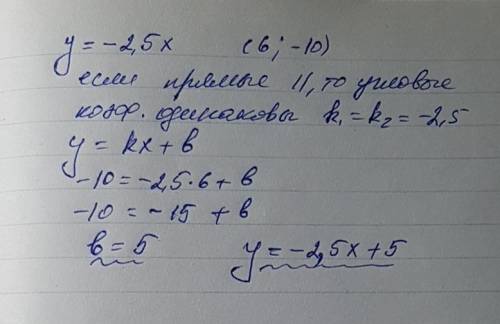 y = -2,5x (6; -10)
если прямые //, то угловые
коэф. одинаковы k₁ = k₂ = -2,5
y = kx + b
-10 = -2,5·6 + b
-10 = -15 + b
b = 5 y = -2,5x + 5